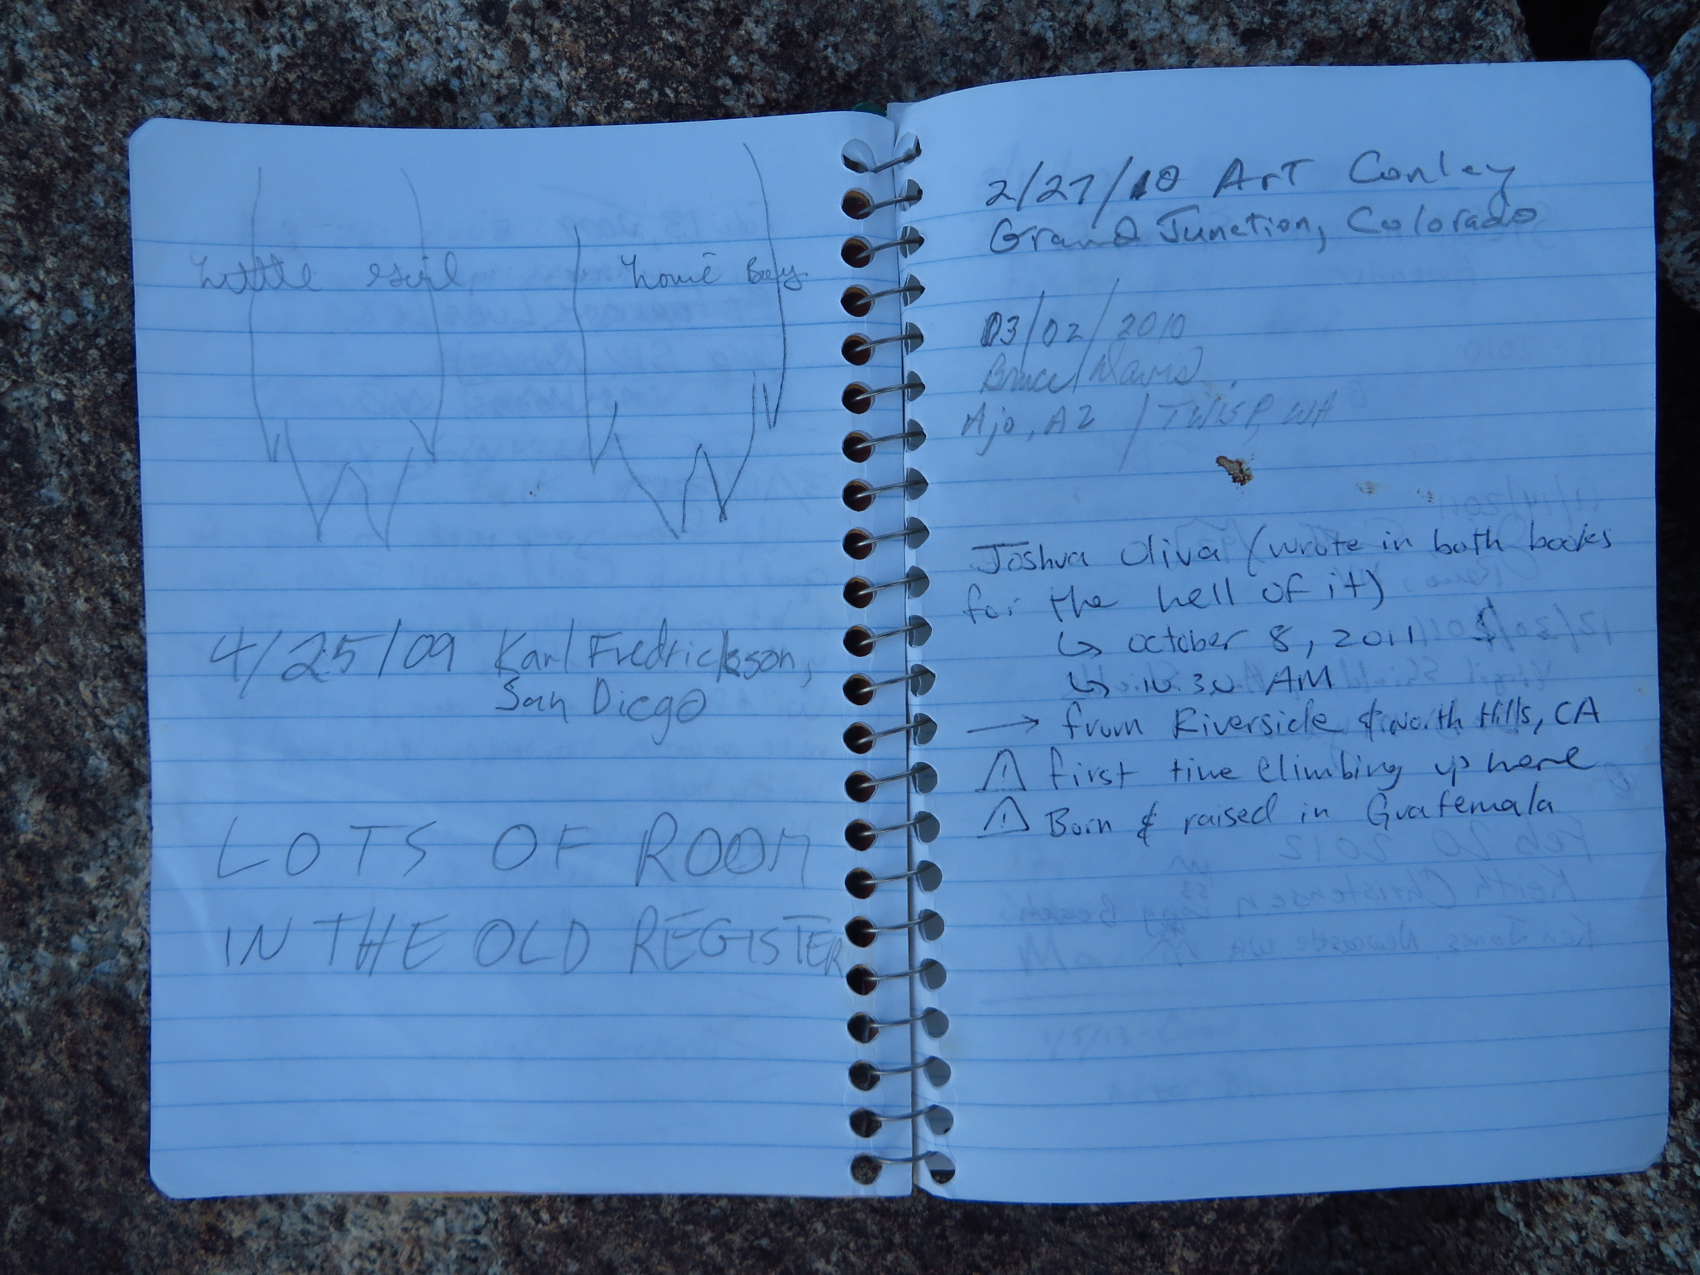 Little girl home Boy
4/25/09 Karl Fredrickson,
San Diego
LOTS OF ROOM
IN THE OLD REGISTER
2/27/10 ArT Conley
Grand Junction, Colorado
03/02/2010
Bruce Davis
Ajo, AZ / TWISP, WA
Joshua Oliva (wrote in both books
for the hell of it)
↳ october 8, 2011
↳ 10:30 AM
→ from Riverside & North Hills, CA
⚠ first time climbing up here
⚠ Born & raised in Guatemala